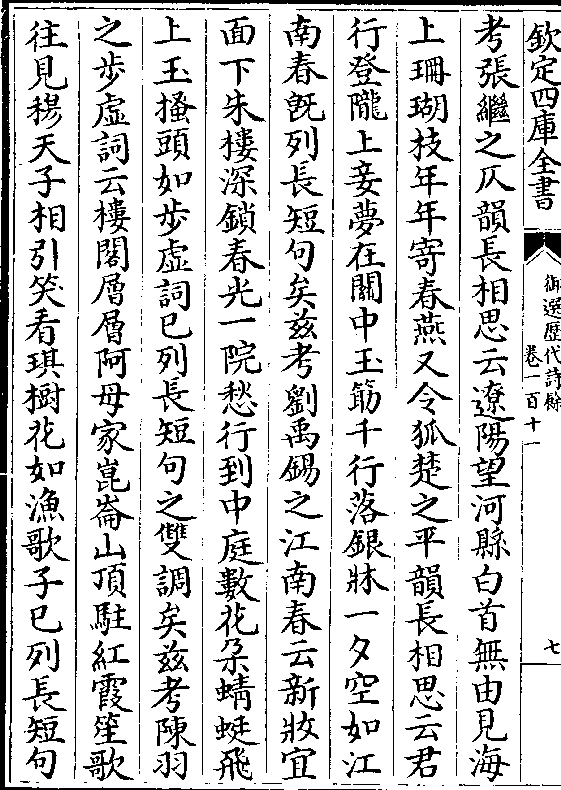 欽定四庫全書
御選歷代詩餘
卷一百十一
七
考張繼之仄韻長相思云遼陽望河縣白首無由見海
上珊瑚枝年年寄春燕又令狐楚之平韻長相思云君
行登隴上妾夢在關中玉筯千行落銀牀一夕空如江
南春旣列長短句矣兹考劉禹錫之江南春云新妝宜
面下朱樓深鎖春光一院愁行到中庭數花朶蜻蜓飛
上玉搔頭如步虛詞已列長短句之雙調矣兹考陳羽
之步虛詞云樓閣層層阿母家崑崙山頂駐紅霞笙歌
往見穆天子相引笑看琪樹花如漁歌子已列長短句